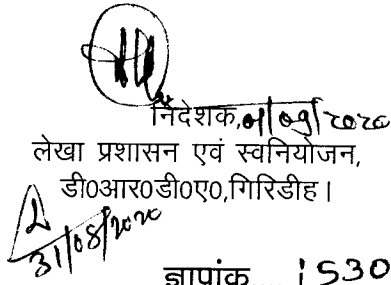 निदेशक, 01/09/2020
लेखा प्रशासन एवं स्वनियोजन,
डी0आर0डी0ए0,गिरिडीह।
31/08/2020
ज्ञापांक.... 1530